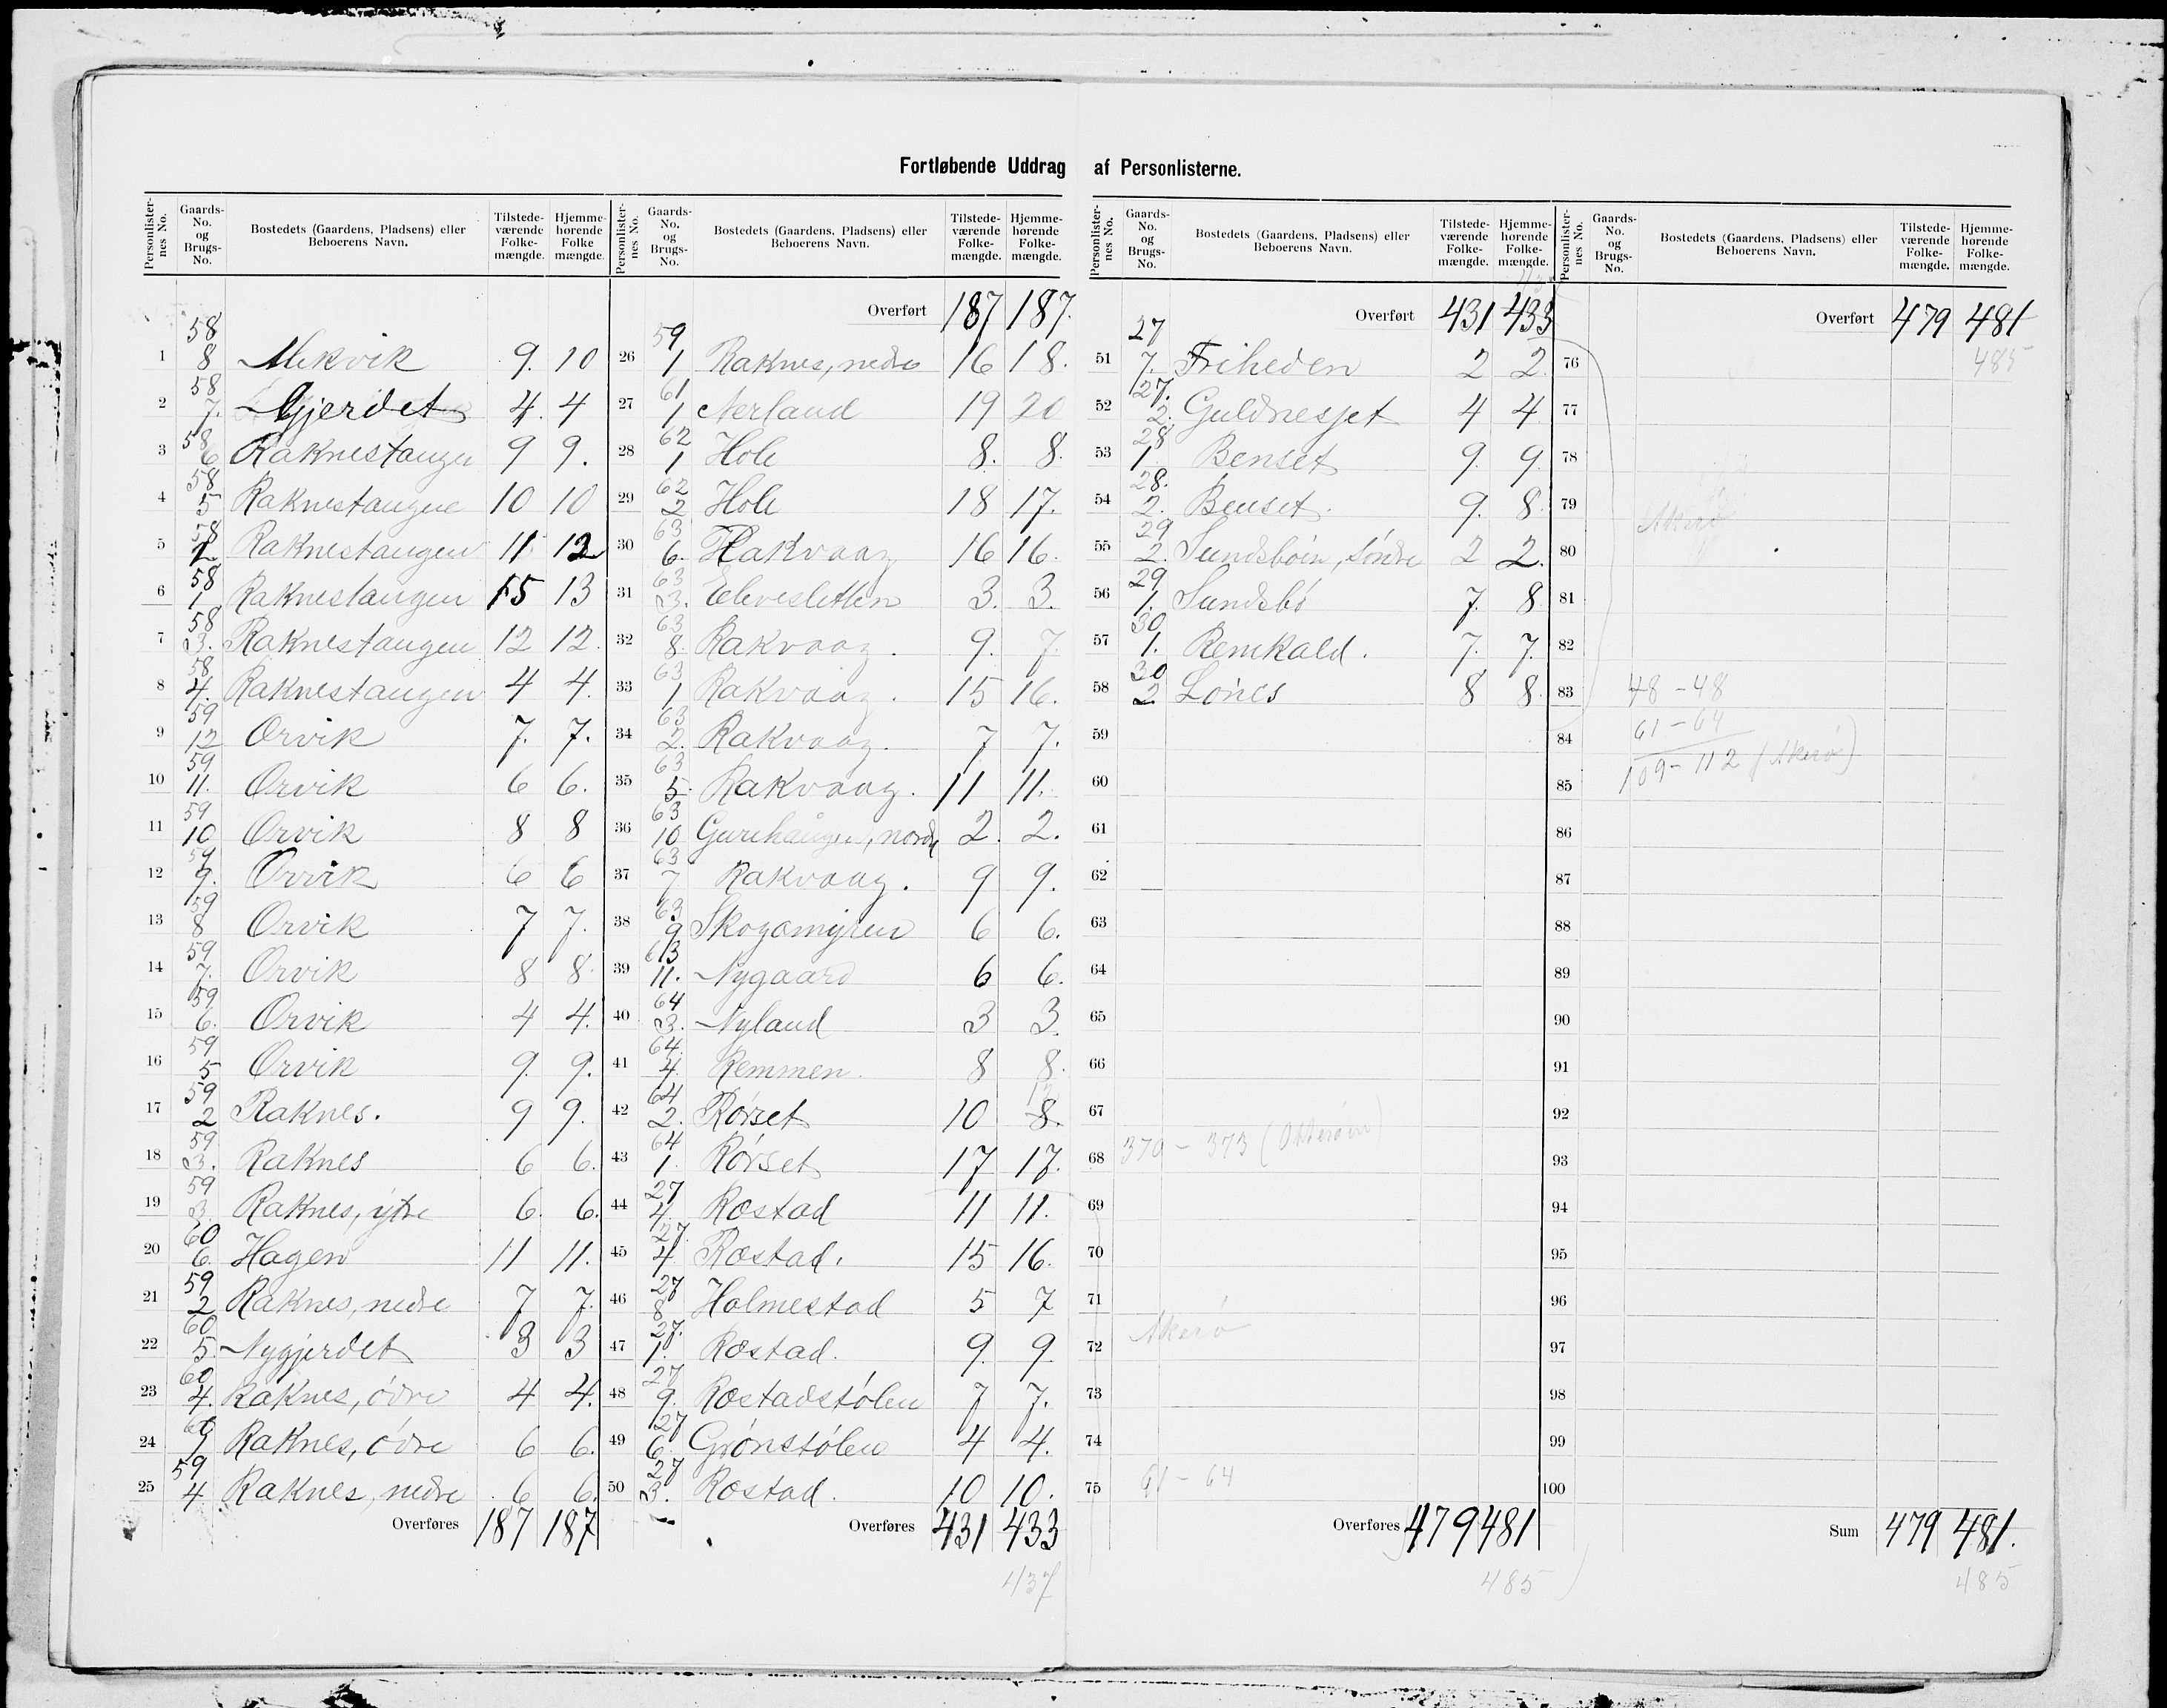 Fortløbende Uddrag af Personlisterne.
Personlister-nes No. | Gaards-No. og Brugs-No. | Bostedets (Gaardens, Pladsens) eller Beboerens Navn. | Tilstede-værende Folke-mængde. | Hjemme-hørende Folke mængde.
1 58 8 Mekvik 9. 10
2 58 7. Gjerdet 4. 4
3 58 6 Raknestangen 9 9.
4 58 5 Raknestangen 10 10
5 58 2 Raknestangen 11 12
6 58 1 Raknestangen 15 13
7 58 3. Raknestangen 12 12.
8 58 4. Raknestangen 4 4.
9 59 12 Orvik 7. 7.
10 59 11. Orvik 6 6.
11 59 10 Orvik 8 8
12 59 9. Orvik 6 6
13 59 8 Orvik 7 7.
14 59 7. Orvik 8 8.
15 59 6. Orvik 4 4.
16 59 5 Orvik 9. 9.
17 59 2 Raknes. 9 9.
18 59 3. Raknes 6 6.
19 59 3. Raknes, ytre 6. 6.
20 60 6. Hagen 11 11.
21 59 2 Raknes, nedre 7 7.
22 60 5. Nygjerdet 3 3
23 60 4. Raknes, óvre 4 4.
24 60 1 Raknes, óvre 6 6.
25 59 4 Raknes, nedre 6 6.
Overføres 187 187
Personlister-nes No. | Gaards-No. og Brugs-No. | Bostedets (Gaardens, Pladsens) eller Beboerens Navn. | Tilstede-værende Folke-mængde. | Hjemme-hørende Folke-mængde.
Overført 187 187.
26 59 1 Raknes, nedre 16 18.
27 61 1 Nerland 19 20
28 62 1 Hole 8. 8.
29 62 2 Hole 18 17.
30 63 6. Rakvaag 16 16.
31 63 3. Elvesletten 3. 3.
32 63 8. Rakvaag. 9. 7.
33 63 1 Rakvaag. 15 16.
34 63 2. Rakvaag. 7 7.
35 63 5. Rakvaag. 11 11.
36 63 10 nordre 2. 2.
37 63 7 Rakvaag. 9 9.
38 63 9 Skogamyren 6 6.
39 63 11. Nygaard 6 6.
40 64 3. Nyland 3 3.
41 64 4. Remmen. 8 8.
42 64 2. Rørset 10 8. 12
43 64 1. Rørset 17 17.
44 27 4. Røstad 11 11.
45 27. 4 Røstad. 15 16.
46 27 8 Holmestad 5 7
47 27. 1. Røstad. 9. 9.
48 27 9. Røstadstólen 7 7.
49 27 6. Grónstólen 4 4.
50 27 3. Røstad. 10 10.
Overføres 431 433
437
Personlister-nes No. | Gaards-No. og Brugs-No. | Bostedets (Gaardens, Pladsens) eller Beboerens Navn. | Tilstede-værende Folke-mængde. | Hjemme-hørende Folke-mængde.
Overført 431 433
51 27 7. Friheden 2 2.
52 27. 2. Guldnesjet 4 4
53 28 1. Benset 9. 9.
54 28. 2. Benset. 9. 8.
55 29 2. Sundsbóin, sóndre 2 2.
56 29 1. Sundsbó 7. 8.
57 30 1. Remkald. 7. 7.
58 30 2. Lónes 8 8.
59
60
61
62
63
64
65
66
67
68 370 - 373 (Otterøen)
69
70
71
72 Akerø
73
74
75 61 - 64
Overføres 479 481
485
Personlister-nes No. | Gaards-No. og Brugs-No. | Bostedets (Gaardens, Pladsens) eller Beboerens Navn. | Tilstede-værende Folke-mængde. | Hjemme-hørende Folke-mængde.
Overført 479 481
76 485
77
78
79 Akerø
80
81
82
83 48 - 48
84 61 - 64
85 109 - 112 (Akerø)
86
87
88
89
90
91
92
93
94
95
96
97
98
99
100
Sum 479 481.
485